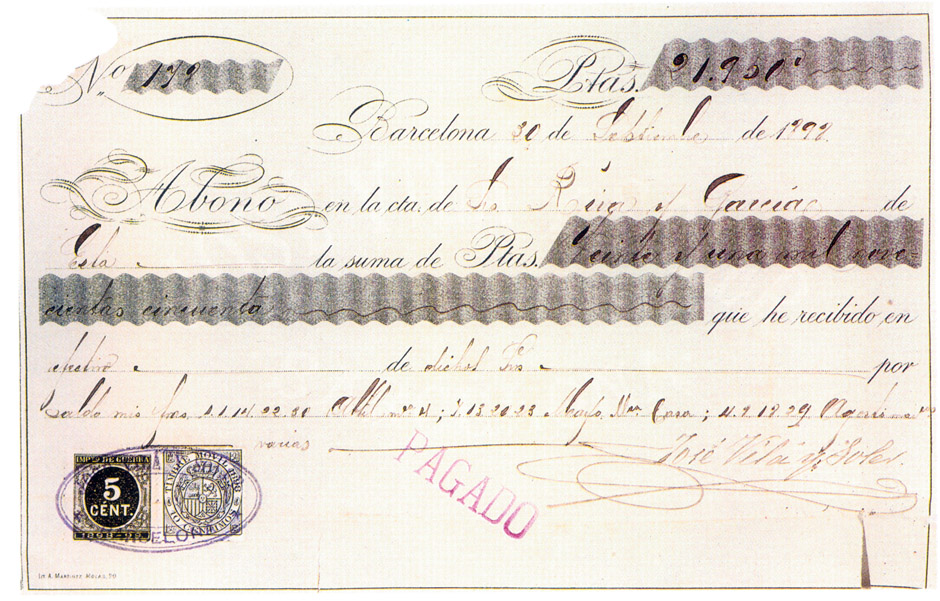 Nº 179 Ptas. 21.950'
Barcelona 30 de Septiembre de 1898
Abonó en la cta. de Sres. Puig y García de
Esta la suma de Ptas. Veinte y una mil nove-
cientas cincuenta que he recibido en
efectivo de dichos Sres por
Saldo mis fras. 4.1.14.22.30 Abril nº 4; 13.20.23 Mayo, Casa; 4.9.18.29 Agosto
varias José Vilá y Soler.
PAGADO
IMPTO DE GUERRA
5
CENT.
1898-99
TIMBRE MOVIL 1898
10 CENTIMOS
BARCELONA
LIT. A. MARTINEZ